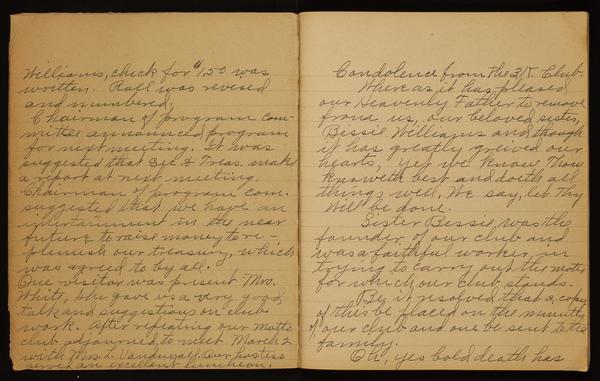 Williams, check for $1.50 was
written. Roll was revised
and numbered.
Chairman of program com-
mittee announced program
for next meeting. It was
suggested that Sec & Treas. make
a report at next meeting.
Chairman of program com.
suggested that we have an
intertainment in the near
future to raise money to re-
plenish our treasury, which
was agreed to by all.
One visitor was present Mrs.
White, she gave us a very good
talk and suggestions on club
work. After repeating our motto
club adjourned to meet March 2
with Mrs. L. Our hostess
served an excellent luncheon.
Condolence from the Club.
Where as it has pleased
our Heavenly Father to remove
from us, our beloved sister,
Bessie Williams and though
it has greatly greived our
hearts, yet we know Thou
knoweth best and doeth all
things well, We say, let Thy
Will be done.
Sister Bessie was the
founder of our club and
was a faithful worker, in
trying to carry out the motto
for which our club stands.
Be it resolved that a copy
of this be placed on the minutes
of our club and one be sent to the
family.
Oh, yes cold death has